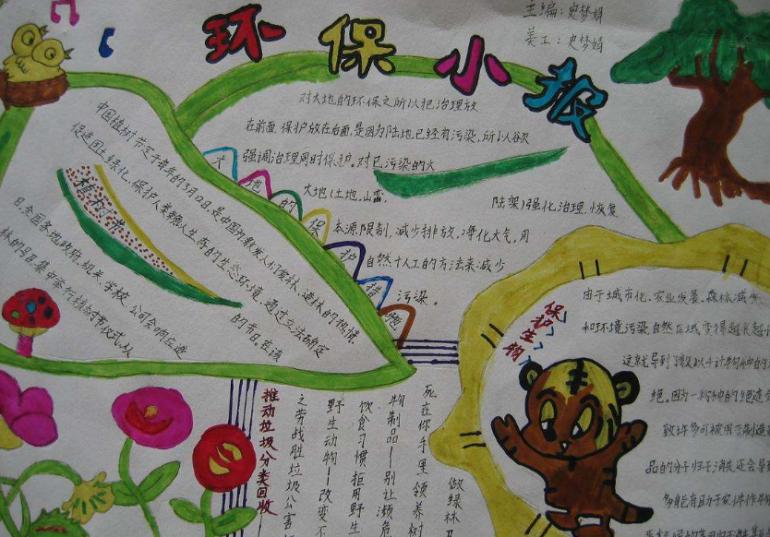 环保小报
主编：史梦娟
美工：史梦娟
对大地的环保之所以把治理放
在前面，保护放在后面，是因为陆地已经有污染，所以谷欠
强调治理同时保护。对已污染的大
大地（土地、山
陆架）强化治理，恢复
本源限制，减少排放，净化大气，用
自然十人工的方法来减少
污染。
大地的保护措施
植树节
中国植树节定于每年的3月12日，是中国为激发人们爱林、造林的热情，
促进国土绿化，保护人类赖以生存的生态环境，通过立法确定
的节日。在该
日，全国各地政府、机关、学校、公司会响应造
林的号召，集中举行植树节仪式，从
保护生物
由于城市化、农业发展、森林减少
和环境污染，自然区域变得越来越
这就导到了数以千计物种的
绝。因为一些物种的绝迹会
致许多可被用于制造
品的分子归于消失，还会
多能有助于农作物
推动垃圾分类回收
之劳战胜垃圾公害
野生动物—改变不
饮食习惯 拒用野生
物制品—别让濒危
死在你手里 领养树
做绿林